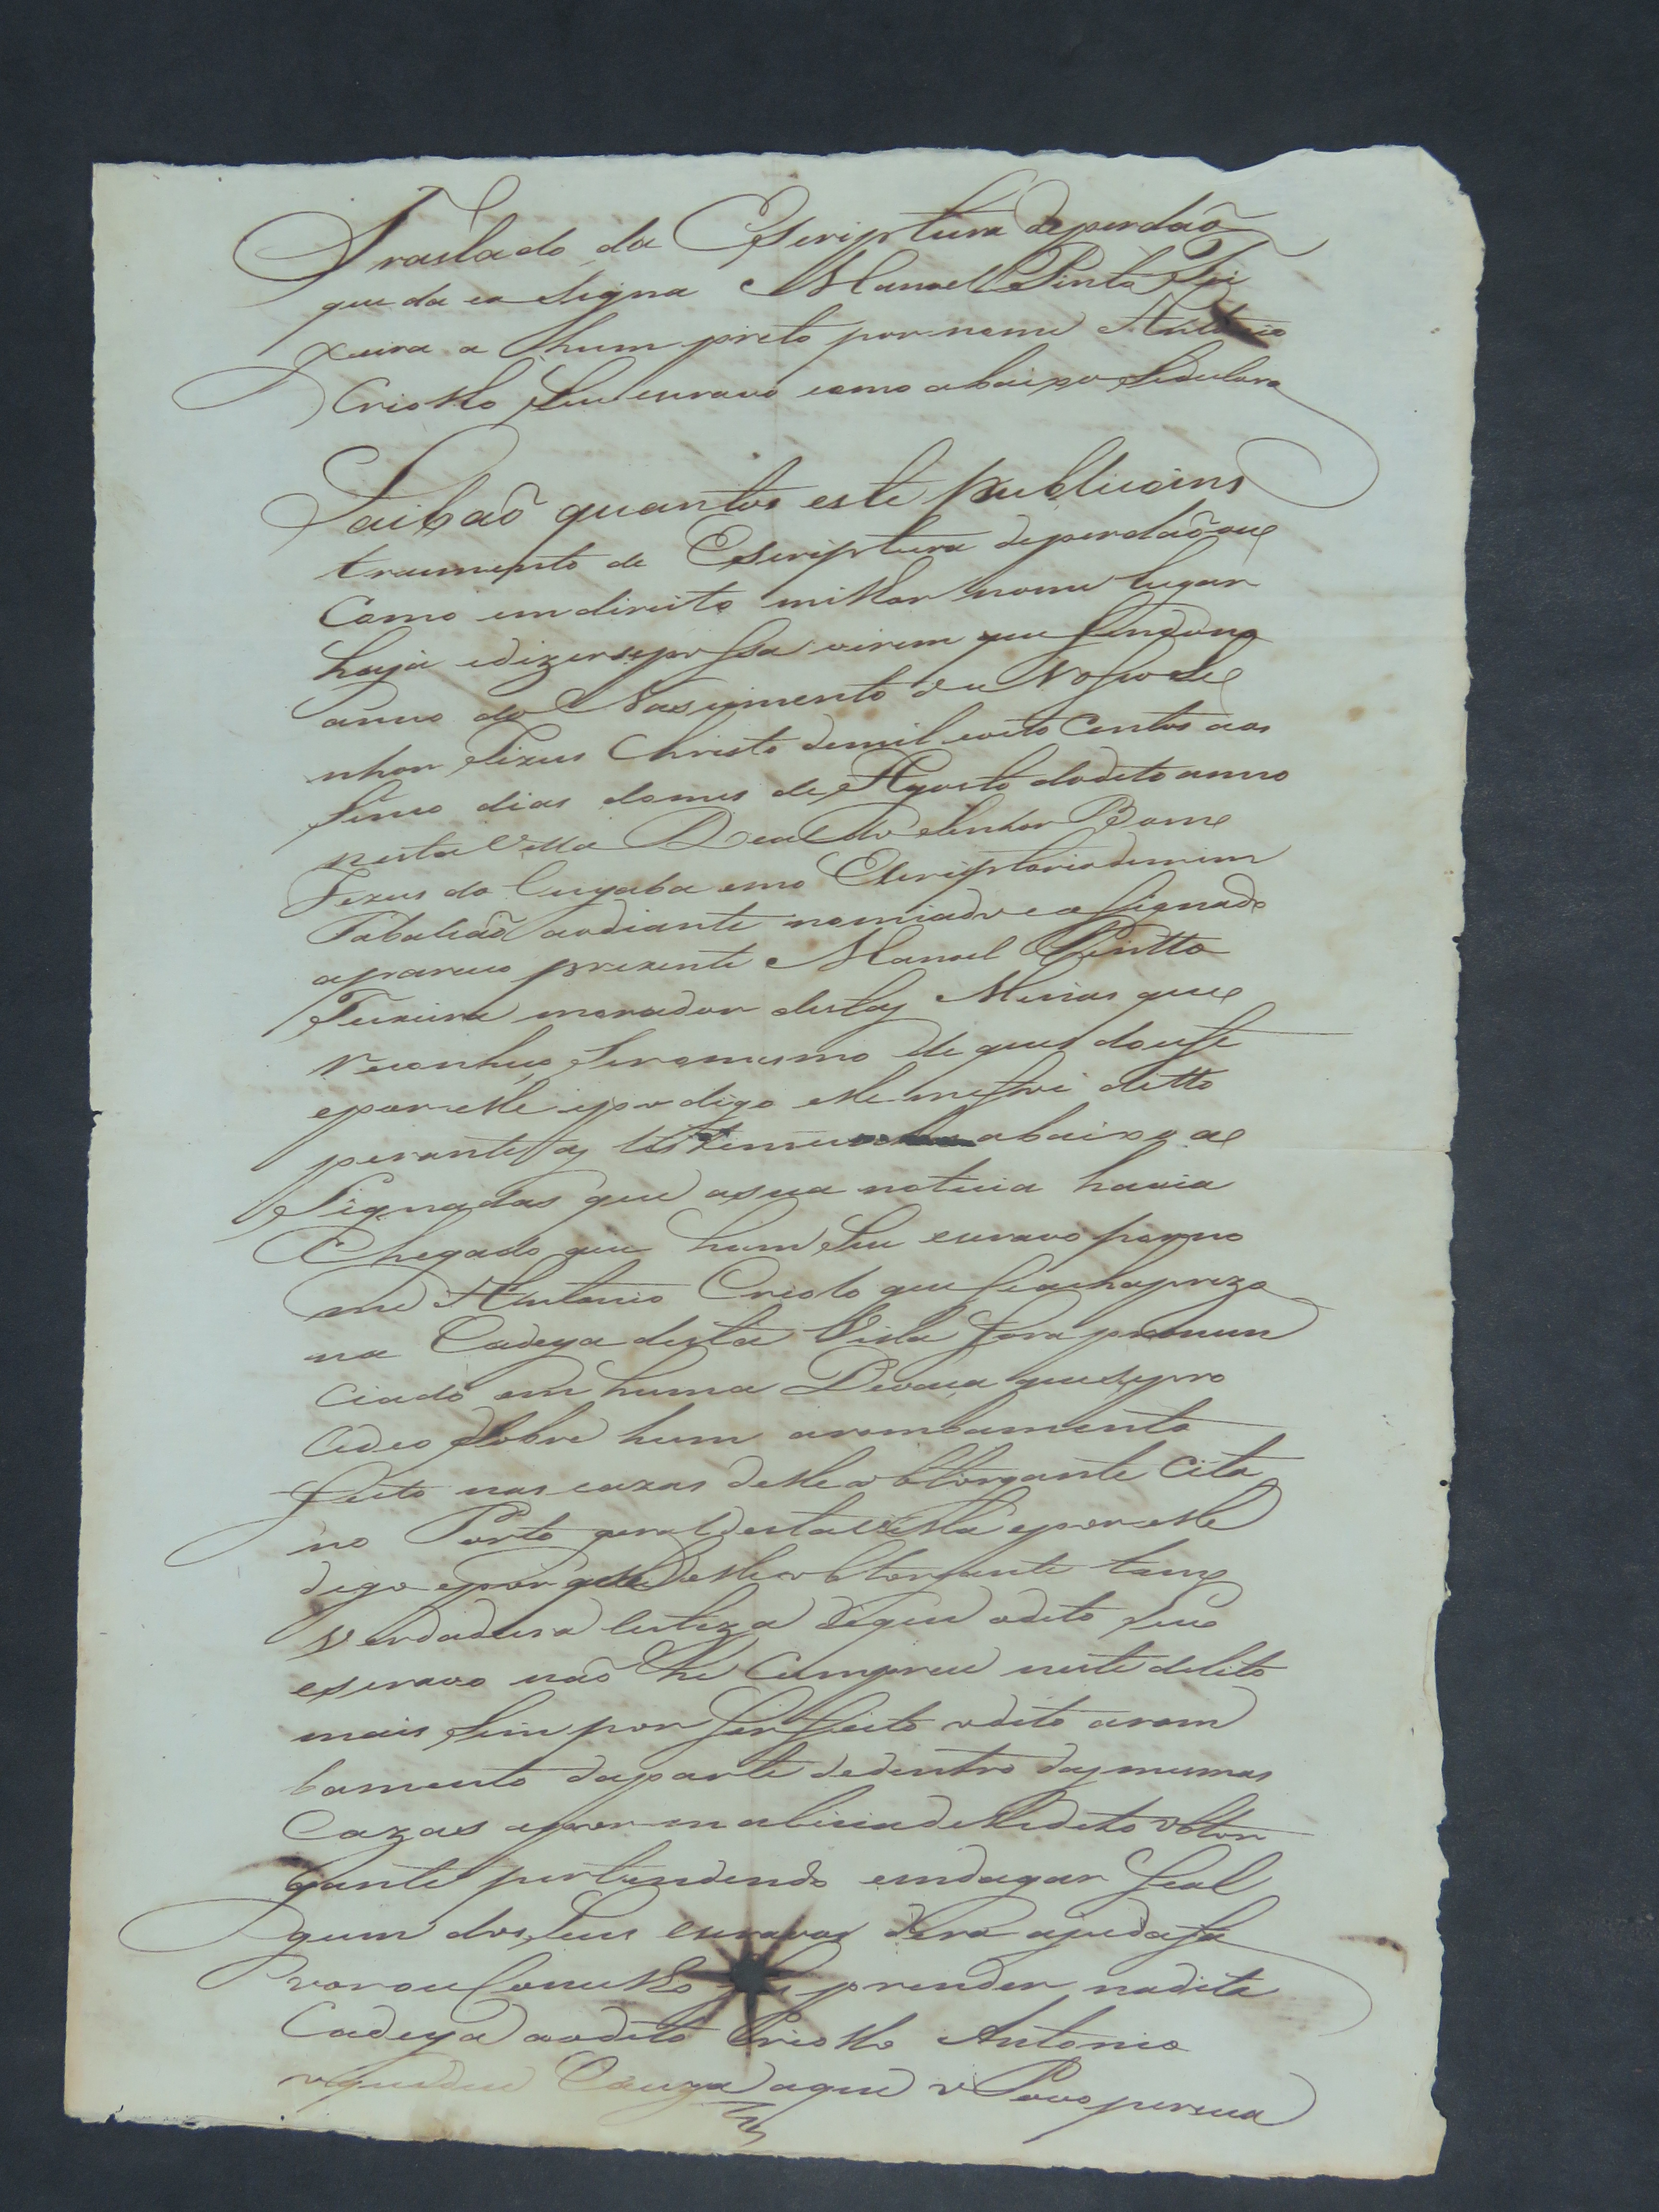 Traslado da Escriptura de perdaõ
que da ea Signa Manoel Pinto Tei
xeira a hum preto por nome Antonio
Criollo Seu escravo como abaixo Sedeclara
Saibaõ quantos este publico ins
trumento de Escriptura de perdaõ ou
Como em direito milhor nome lugar
haja edizerse possa virem que Sendono
anno do Nascimento de Nosso Se
nhor Jezus Christo demil eoito Centos aos
Sinco dias domes de Agosto dodito anno
nesta Villa Real do Senhor Bom
Jezus do Cuyaba emo Escriptorio demim
Tabaliaõ aodiante nomiado e aSignado
apareceo prezente Manoel Pintto
Teixeira morador destas Minas que
Reconheço Ser omesmo de que douffe
epor elle epor digo elle mefoi ditto
perante as testemunhas abaixo a
Signadas que asua noticia havia
Chegado que hum Seu escravo por no
me Antonio Criolo que Seachaprezo
na Cadeya desta Villa fora pronun
Ciado em huma Devaça que sepro
Cedeo Sobre hum arombamento
feito nas cazas delle obtorgante Cita
no Porto geral desta Villa epor elle
digo epor que delle obtorgante tem
Verdadeira Certeza deque odito Seu
escravo naõ he Cumpreci neste delito
mais Sim por Ser feito odito arom
bamento daparte dedentro das mesmas
Cazas epor malicia delledito obtor
gante pertendendo emdagar Seal
gum dos Seus escravos dera ajuda fa
vor ou Conselho prender nadita
Cadeya aodito Criollo Antonio
oquedeu Cauza aque o Povo persua